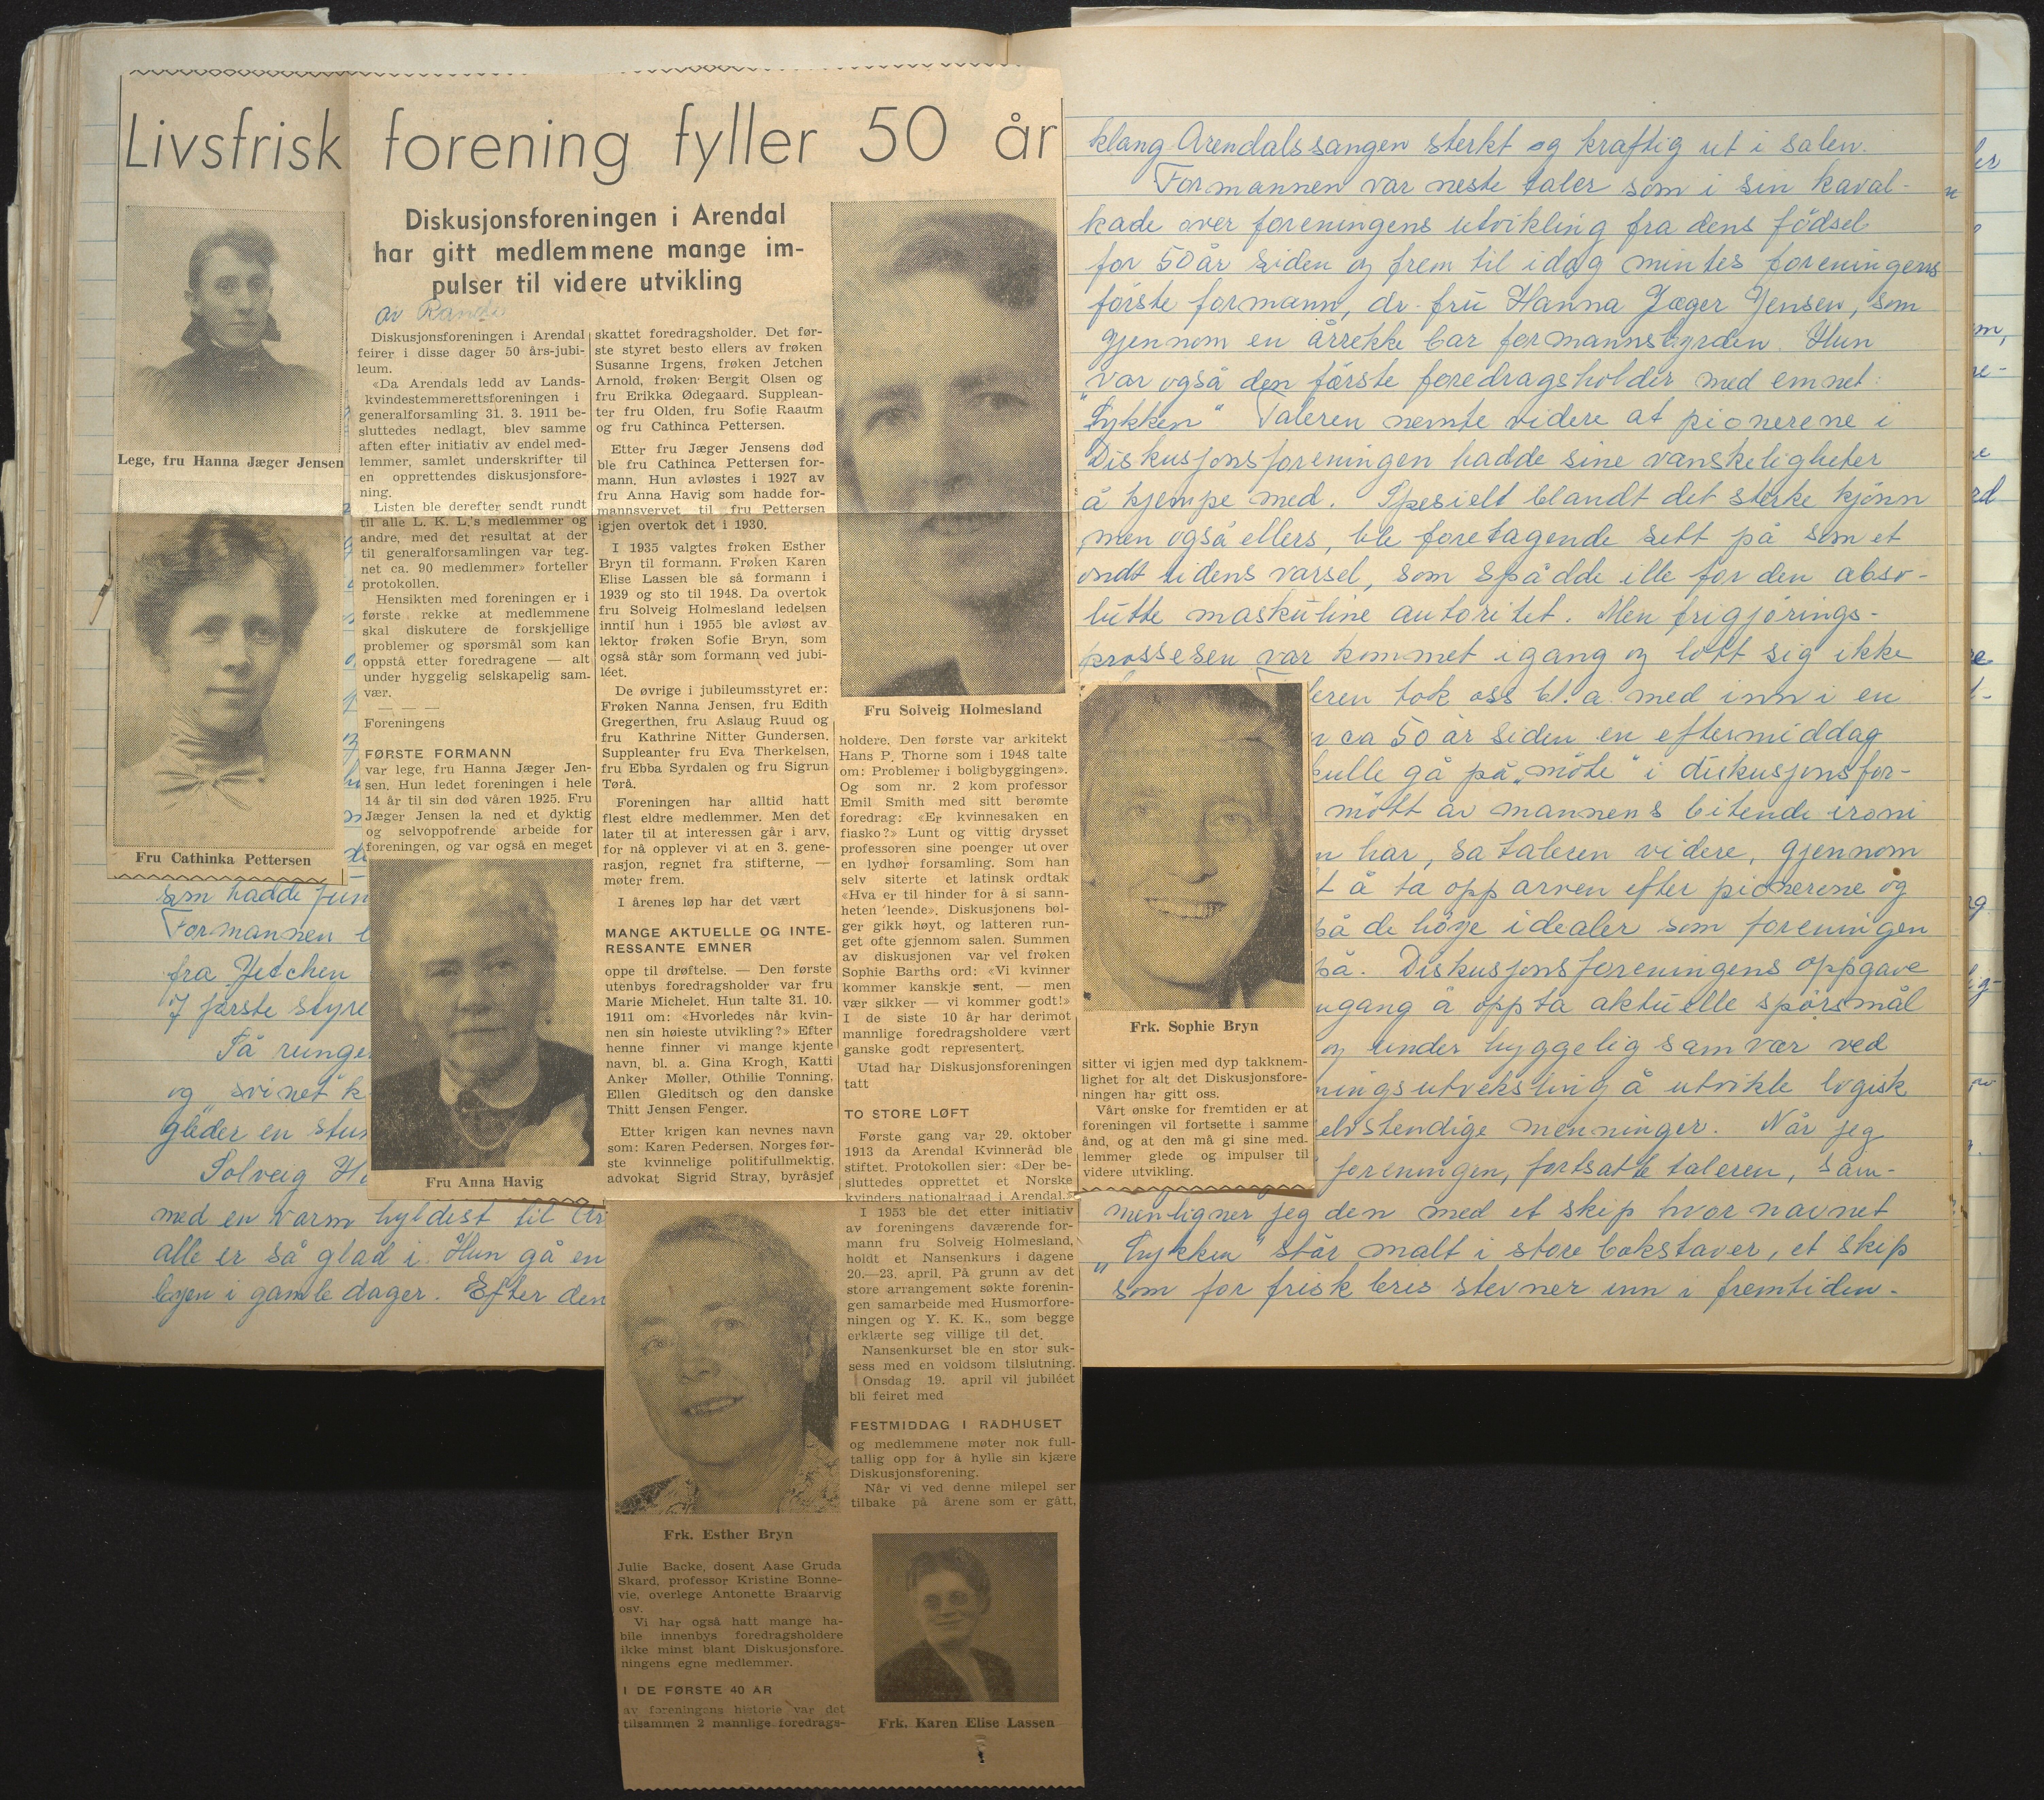 Livsfrisk forening fyller 50 år
Diskusjonsforeningen i Arendal
har gitt medlemmene mange im-
pulser til videre utvikling
av
Lege, fru Hanna Jæger Jensen
Fru Cathinka Pettersen
Diskusjonsforeningen i Arendal
feirer i disse dager 50 års-jubi-
leum.
«Da Arendals ledd av Lands-
kvindestemmerettsforeningen i
generalforsamling 31. 3. 1911 be-
sluttedes nedlagt, blev samme
aften efter initiativ av endel med-
lemmer, samlet underskrifter til
en opprettendes diskusjonsfore-
ning.
Listen ble derefter sendt rundt
til alle L. K. L.'s medlemmer og
andre, med det resultat at der
til generalforsamlingen var teg-
net ca. 90 medlemmer» forteller
protokollen.
Hensikten med foreningen er i
første rekke at medlemmene
skal diskutere de forskjellige
problemer og spørsmål som kan
oppstå etter foredragene — alt
under hyggelig selskapelig sam-
vær.
— — —
Foreningens
FØRSTE FORMANN
var lege, fru Hanna Jæger Jen-
sen. Hun ledet foreningen i hele
14 år til sin død våren 1925. Fru
Jæger Jensen la ned et dyktig
og selvoppofrende arbeide for
foreningen, og var også en meget
Fru Anna Havig
skattet foredragsholder. Det før-
ste styret besto ellers av frøken
Susanne Irgens, frøken Jetchen
Arnold, frøken Bergit Olsen og
fru Erikka Ødegaard. Supplean-
ter fru Olden, fru Sofie Raaum
og fru Cathinca Pettersen.
Etter fru Jæger Jensens død
ble fru Cathinca Pettersen for-
mann. Hun avløstes i 1927 av
fru Anna Havig som hadde for-
mannsvervet til fru Pettersen
igjen overtok det i 1930.
I 1935 valgtes frøken Esther
Bryn til formann. Frøken Karen
Elise Lassen ble så formann i
1939 og sto til 1948. Da overtok
fru Solveig Holmesland ledelsen
inntil hun i 1955 ble avløst av
lektor frøken Sofie Bryn, som
også står som formann ved jubi-
léet.
De øvrige i jubileumsstyret er:
Frøken Nanna Jensen, fru Edith
Gregerthen, fru Aslaug Ruud og
fru Kathrine Nitter Gundersen.
Suppleanter fru Eva Therkelsen,
fru Ebba Syrdalen og fru Sigrun
Tørå.
Foreningen har alltid hatt
flest eldre medlemmer. Men det
later til at interessen går i arv,
for nå opplever vi at en 3. gene-
rasjon, regnet fra stifterne, —
møter frem.
I årenes løp har det vært
MANGE AKTUELLE OG INTE-
RESSANTE EMNER
oppe til drøftelse. — Den første
utenbys foredragsholder var fru
Marie Michelet. Hun talte 31. 10.
1911 om: «Hvorledes når kvin-
nen sin høieste utvikling?» Efter
henne finner vi mange kjente
navn, bl. a. Gina Krogh, Katti
Anker Møller, Othilie Tonning,
Ellen Gleditsch og den danske
Thitt Jensen Fenger.
Etter krigen kan nevnes navn
som: Karen Pedersen, Norges før-
ste kvinnelige politifullmektig,
advokat Sigrid Stray, byråsjef
Frk. Esther Bryn
Julie Backe, dosent Aase Gruda
Skard, professor Kristine Bonne-
vie, overlege Antonette Braarvig
osv.
Vi har også hatt mange ha-
bile innenbys foredragsholdere
ikke minst blant Diskusjonsfore-
ningens egne medlemmer.
I DE FØRSTE 40 ÅR
av foreningens historie var det
tilsammen 2 mannlige foredrags-
Fru Solveig Holmesland
holdere. Den første var arkitekt
Hans P. Thorne som i 1948 talte
om: Problemer i boligbyggingen».
Og som nr. 2 kom professor
Emil Smith med sitt berømte
foredrag: «Er kvinnesaken en
fiasko?» Lunt og vittig drysset
professoren sine poenger ut over
en lydhør forsamling. Som han
selv siterte et latinsk ordtak
«Hva er til hinder for å si sann-
heten leende». Diskusjonens bøl-
ger gikk høyt, og latteren run-
get ofte gjennom salen. Summen
av diskusjonen var vel frøken
Sophie Barths ord: «Vi kvinner
kommer kanskje sent, — men
vær sikker — vi kommer godt!»
I de siste 10 år har derimot
mannlige foredragsholdere vært
ganske godt representert.
Utad har Diskusjonsforeningen
tatt
TO STORE LØFT
Første gang var 29. oktober
1913 da Arendal Kvinneråd ble
stiftet. Protokollen sier: «Der be-
sluttedes opprettet et Norske
kvinders nationalraad i Arendal.»
I 1953 ble det etter initiativ
av foreningens daværende for-
mann fru Solveig Holmesland,
holdt et Nansenkurs i dagene
20.—23. april. På grunn av det
store arrangement søkte forenin-
gen samarbeide med Husmorfore-
ningen og Y. K. K., som begge
erklærte seg villige til det.
Nansenkurset ble en stor suk-
sess med en voldsom tilslutning.
Onsdag 19. april vil jubiléet
bli feiret med
FESTMIDDAG I RÅDHUSET
og medlemmene møter nok full-
tallig opp for å hylle sin kjære
Diskusjonsforening.
Når vi ved denne milepel ser
tilbake på årene som er gått,
Frk. Karen Elise Lassen
Frk. Sophie Bryn
sitter vi igjen med dyp takknem-
lighet for alt det Diskusjonsfore-
ningen har gitt oss.
Vårt ønske for fremtiden er at
foreningen vil fortsette i samme
ånd, og at den må gi sine med-
lemmer glede og impulser til
videre utvikling.
som hadde
Formannen
fra Jetchen
i første styre
Så runge
og "svinet" k
gleder en stun
Solveig H
med en varm hyldest til Ar
alle er så glad i. Hun gå en
byen i gamle dager. Efter den
klang Arendalssangen sterkt og kraftig ut i salen.
Formannen var neste taler som i sin kaval-
kade over foreningens utvikling fra dens fødsel
for 50 år siden og frem til idag mintes foreningens
første formann, dr. fru Hanna Jæger Jensen, som
gjennom en årrekke bar formannsbyrden. Hun
var også den første foredragsholder med emnet:
"Lykken" Taleren nevnte videre at pionerene i
Diskusjonsforeningen hadde sine vanskeligheter
å kjempe med. Spesielt blandt det sterke kjønn
men også ellers, ble foretagende sett på som et
ondt tidens varsel, som spådde ille for den abso-
lutte maskuline autoritet. Men frigjørings-
prossesen var kommet igang og lott sig ikke
eren tok oss bl.a. med inn i en
ca 50 år siden en eftermiddag
kulle gå på "møte" i diskusjonsfor-
møtt av mannens bitende ironi
n har, sa taleren videre, gjennom
t å ta opp arven efter pionerene og
på de høye idealer som foreningen
på. Diskusjonsforeningens oppgave
ngang å oppta aktuelle spørsmål
og under hyggelig samvær ved
ningsutveksling å utvikle logisk
elvstendige menninger. Når jeg
foreningen, fortsatte taleren, sam-
menligner jeg den med et skip hvor navnet
"Lykken" står malt i store bokstaver, et skip
som for frisk bris stevner inn i fremtiden.